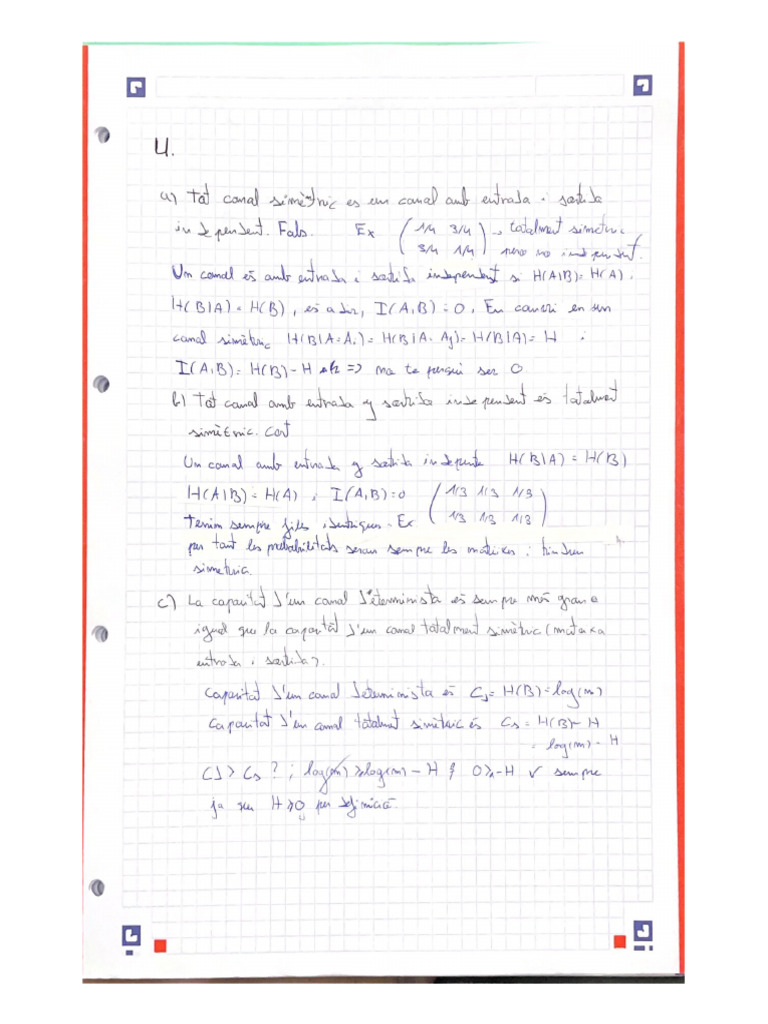 4.
a) Tot canal simètric es un canal amb entrada i sortida
independent. Fals. Ex (1/4 3/4) → totalment simetric
(3/4 1/4) pero no independent.
Un canal és amb entrada i sortida independent si H(A|B)=H(A).
H(B|A) = H(B), és a dir, I(A,B)=0. En canvi en un
canal simètric H(B|A=Ai)=H(B|A=Aj)=H(B|A)=H i
I(A,B)=H(B)-H => no te perquè ser 0
b) Tot canal amb entrada y sortida independent és totalment
simètric. Cert
Un canal amb entrada y sortida indepente H(B|A) = H(B)
H(A|B)=H(A) i I(A,B)=0 (1/3 1/3 1/3)
Tenim sempre files identiques. Ex (1/3 1/3 1/3)
per tant les probabilitats seran sempre les mateixes i tindrem
simetria.
c) La capacitat d'un canal determinista és sempre més gran o
igual que la capacitat d'un canal totalment simètric (mateixa
entrada i sortida).
Capacitat d'un canal determinista és Cd = H(B)=log(m)
Capacitat d'un canal totalment simètric és Cs = H(B)-H
= log(m) - H
Cd > Cs ? ; log(m) ≥ log(m) - H 0 ≥ -H ✓ sempre
ja que H ≥ 0 per definició.